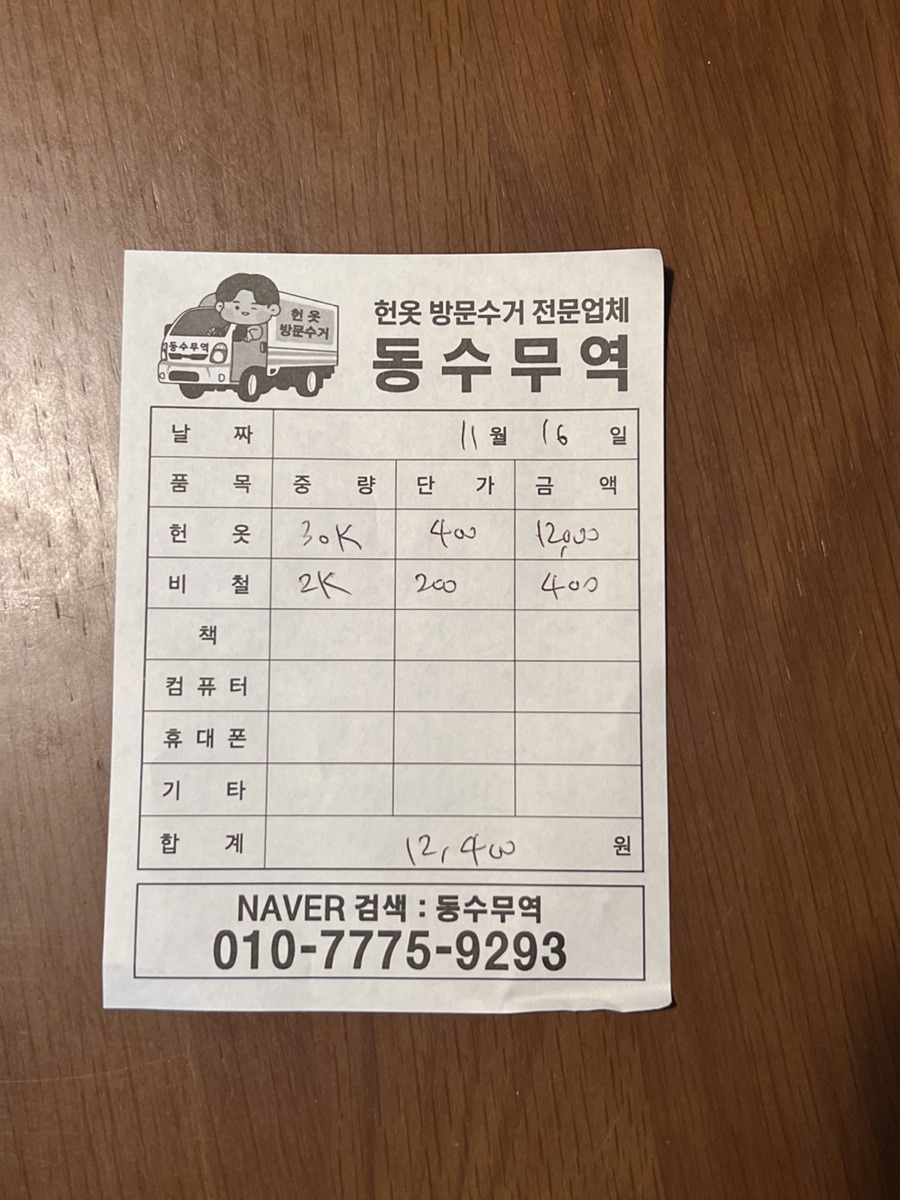 헌 옷
방문수거
동수무역
헌옷 방문수거 전문업체
동수무역
날 짜 11월 16 일
품 목 중 량 단 가 금 액
헌 옷 30K 400 12,000
비 철 2K 200 400
책
컴퓨터
휴대폰
기 타
합 계 12,400 원
NAVER 검색 : 동수무역
010-7775-9293